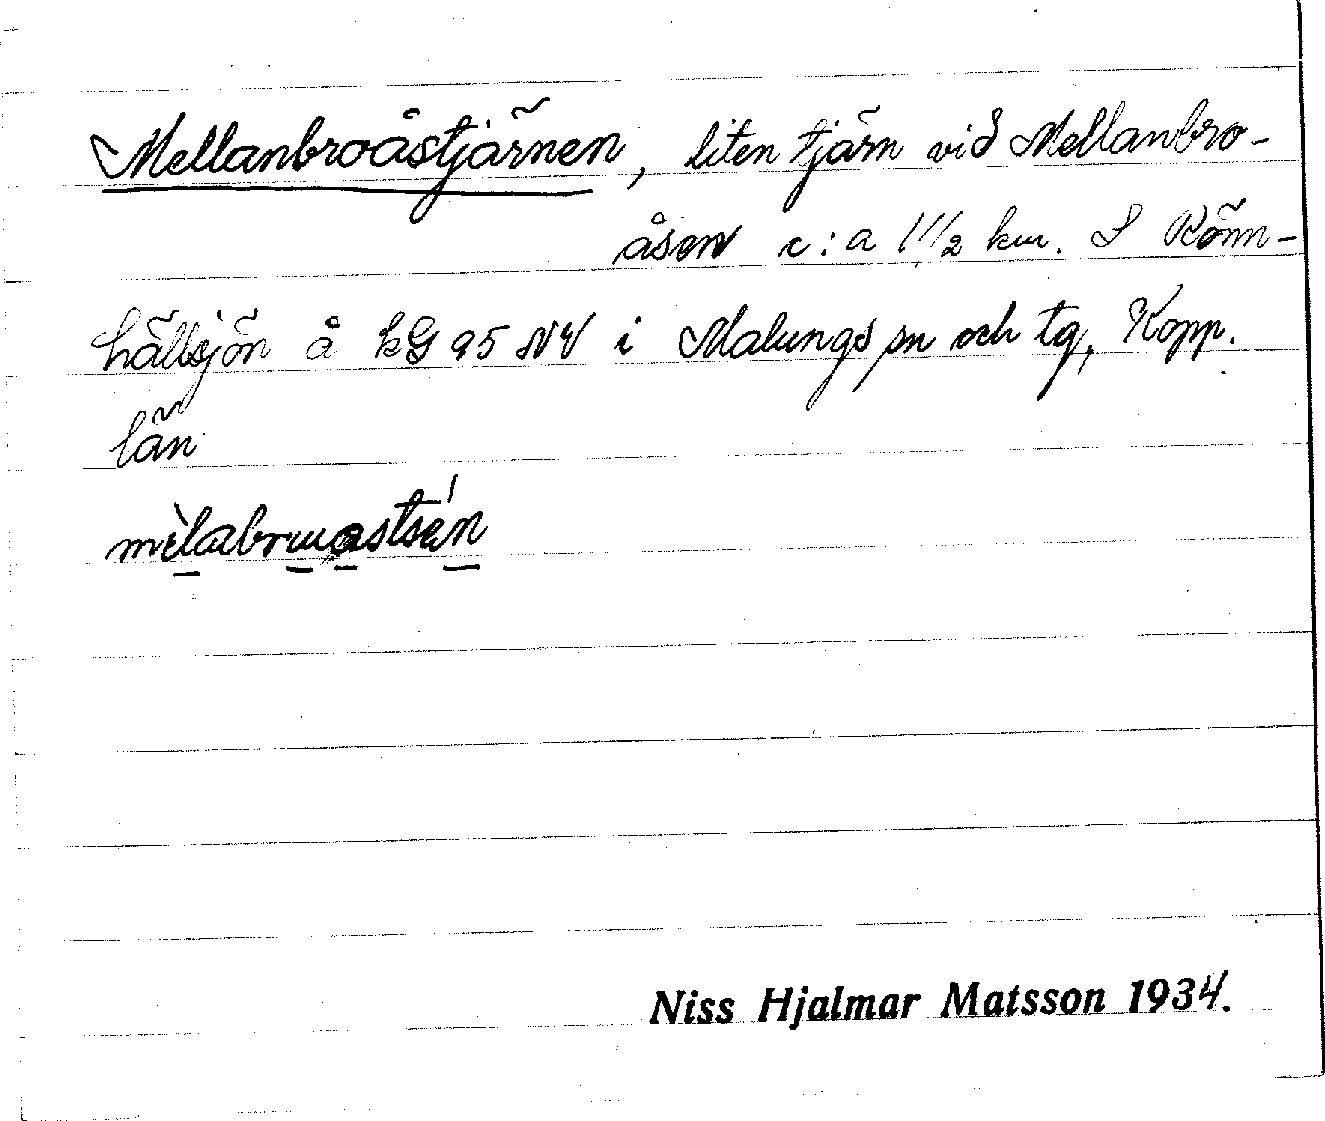 Mellanbroåstjärnen, liten tjärn vid Mellanbro-
åsen c:a 1 1/2 km. S Rönn-
hällsjön å kG 95 NV i Malungs sn och tg, Kopp.
län
mèlabruastsén
Niss Hjalmar Matsson 1934.